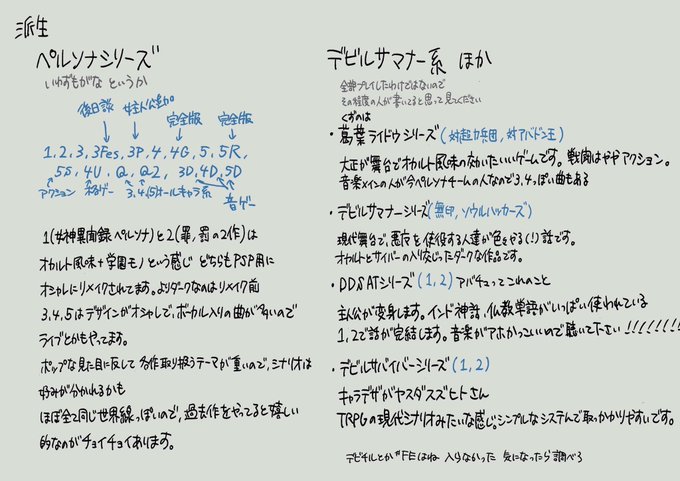 派生
ペルソナシリーズ
いわずもがな というか
後日談 女主人公追加 完全版 完全版
1,2,3,3Fes,3P,4,4G,5,5R,
5S,4U,Q,Q2,3D,4D,5D
アクション 格ゲー 3,4,(5)オールキャラ系 音ゲー
1(女神異聞録ペルソナ)と2(罪,罰の2作)は
オカルト風味+学園モノという感じ どちらもPSP用に
オシャレにリメイクされてます。よりダークなのはリメイク前
3,4,5はデザインがオシャレで、ボーカル入りの曲が多いので
ライブとかもやってます。
ポップな見た目に反して各作取り扱うテーマが重いので、シナリオは
好みが分かれるかも
ほぼ全て同じ世界線っぽいので、過去作をやってると嬉しい
的なのがチョイチョイあります。
デビルサマナー系 ほか
全部プレイしたわけではないので
その程度の人が書いてると思って見てください
くずのは
・葛葉ライドウシリーズ(対超力兵団,対アバドン王)
大正が舞台でオカルト風味の効いたいいゲームです。戦闘はややアクション。
音楽メインの人が今ペルソナチームの人なので3,4っぽい曲もある
・デビルサマナーシリーズ(無印,ソウルハッカーズ)
現代舞台で、悪魔を使役する人達が色々やる(!)話です。
オカルトとサイバーの入り交じったダークな作品です。
・DDSATシリーズ(1,2)アバチュってこれのこと
主人公が変身します。インド神話,仏教単語がいっぱい使われている
1,2で話が完結します。音楽がアホかっこいいので聴いて下さい!!!!!!!
・デビルサバイバーシリーズ(1,2)
キャラデザがヤスダスズヒトさん
TRPGの現代シナリオみたいな感じ。シンプルなシステムで取っかかりやすいです。
デビチルとか#FEはね 入らなかった 気になったら調べろ